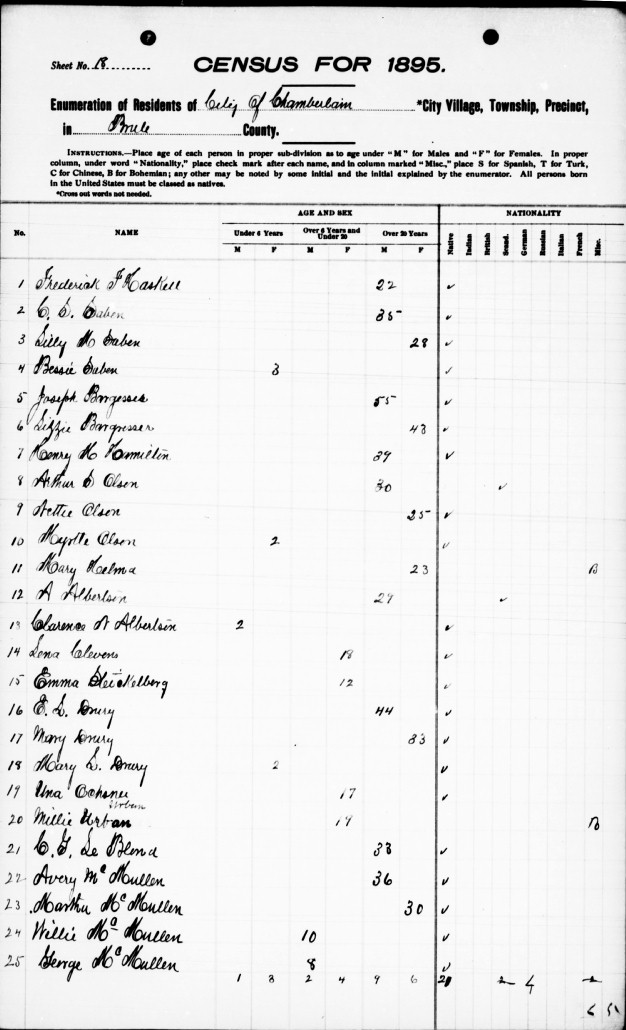 Sheet No. 18
CENSUS FOR 1895.
Enumeration of Residents of City of Chamberlain *City Village, Township, Precinct,
in Brule County.
INSTRUCTIONS.—Place age of each person in proper sub-division as to age under "M" for Males and "F" for Females. In proper
column, under word "Nationality," place check mark after each name, and in column marked "Misc.," place S for Spanish, T for Turk,
C for Chinese, B for Bohemian; any other may be noted by some initial and the initial explained by the enumerator. All persons born
in the United States must be classed as natives.
*Cross out words not needed.
AGE AND SEX NATIONALITY
No. NAME Under 6 Years Over 6 Years and Under 20 Over 20 Years Native Indian British Scand. German Russian Italian French Misc.
M F M F M F
1 Frederick F Haskell 22 ✓
2 C. S. 35 ✓
3 Lilly M Saben 28 ✓
4 Bessie Saben 3 ✓
5 Joseph 55 ✓
6 Lizzie 43 ✓
7 Henry H Hamilton 39 ✓
8 Arthur Olson 30 ✓
9 Nettie Olson 25 ✓
10 Myrtle Olson 2 ✓
11 Mary 23 B
12 A Albertson ✓
13 Clarence N Albertson 2 ✓
14 Lena Clevens 18 ✓
15 Emma 12 ✓
16 E. L. Drury 44 ✓
17 Mary Drury 33 ✓
18 Mary L. Drury 2 ✓
19 Una Ochsner 17 ✓
Urban
20 Millie Urban 19 B
21 C. G. Le Blond 33 ✓
22 Avery McMullen 36 ✓
23 Martha McMullen 30 ✓
24 Willie McMullen 10 ✓
25 George McMullen 8 ✓
1 3 2 4 9 6 2 4 2